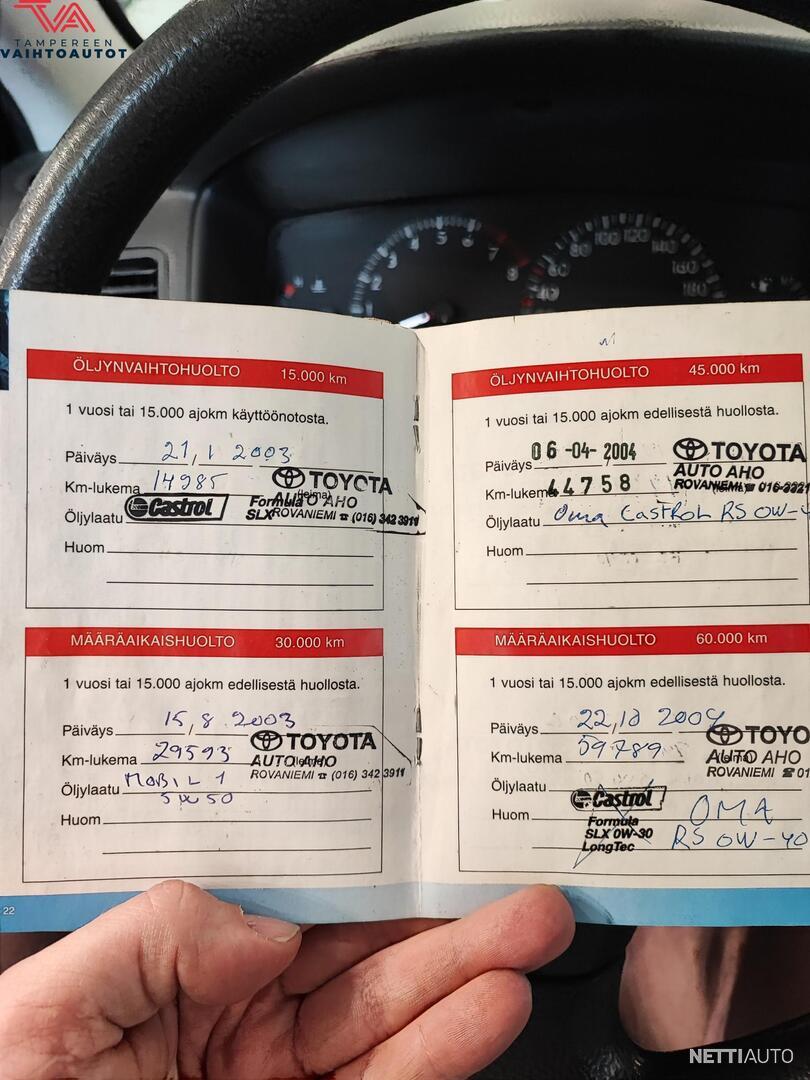 TVA
TAMPEREEN
VAIHTOAUTOT
2 3 4 5 6 7 8
40 60 80 100 120 140 160 180
ÖLJYNVAIHTOHUOLTO 15.000 km
1 vuosi tai 15.000 ajokm käyttöönotosta.
Päiväys 21 / 1 2003
Km-lukema 14985
TOYOTA
AUTO AHO
ROVANIEMI ☎ (016) 342 3911
(leima)
Öljylaatu Castrol Formula
SLX
Huom
MÄÄRÄAIKAISHUOLTO 30.000 km
1 vuosi tai 15.000 ajokm edellisestä huollosta.
Päiväys 15 / 8 2003
Km-lukema 29593
TOYOTA
AUTO AHO
(leima)
ROVANIEMI ☎ (016) 342 3911
Öljylaatu MOBIL 1
5W50
Huom
22
ÖLJYNVAIHTOHUOLTO 45.000 km
1 vuosi tai 15.000 ajokm edellisestä huollosta.
Päiväys 06-04-2004
Km-lukema 44758
TOYOTA
AUTO AHO
ROVANIEMI ☎
(leima)
Öljylaatu Oma CASTROL RS 0W-4
Huom
MÄÄRÄAIKAISHUOLTO 60.000 km
1 vuosi tai 15.000 ajokm edellisestä huollosta.
Päiväys 22 / 10 2004
Km-lukema 59789
TOYO
AUTO AHO
(leima)
ROVANIEMI ☎ 01
Öljylaatu
Castrol
Formula
SLX 0W-30
LongTec
Huom OMA
RS 0W-40
NETTIAUTO